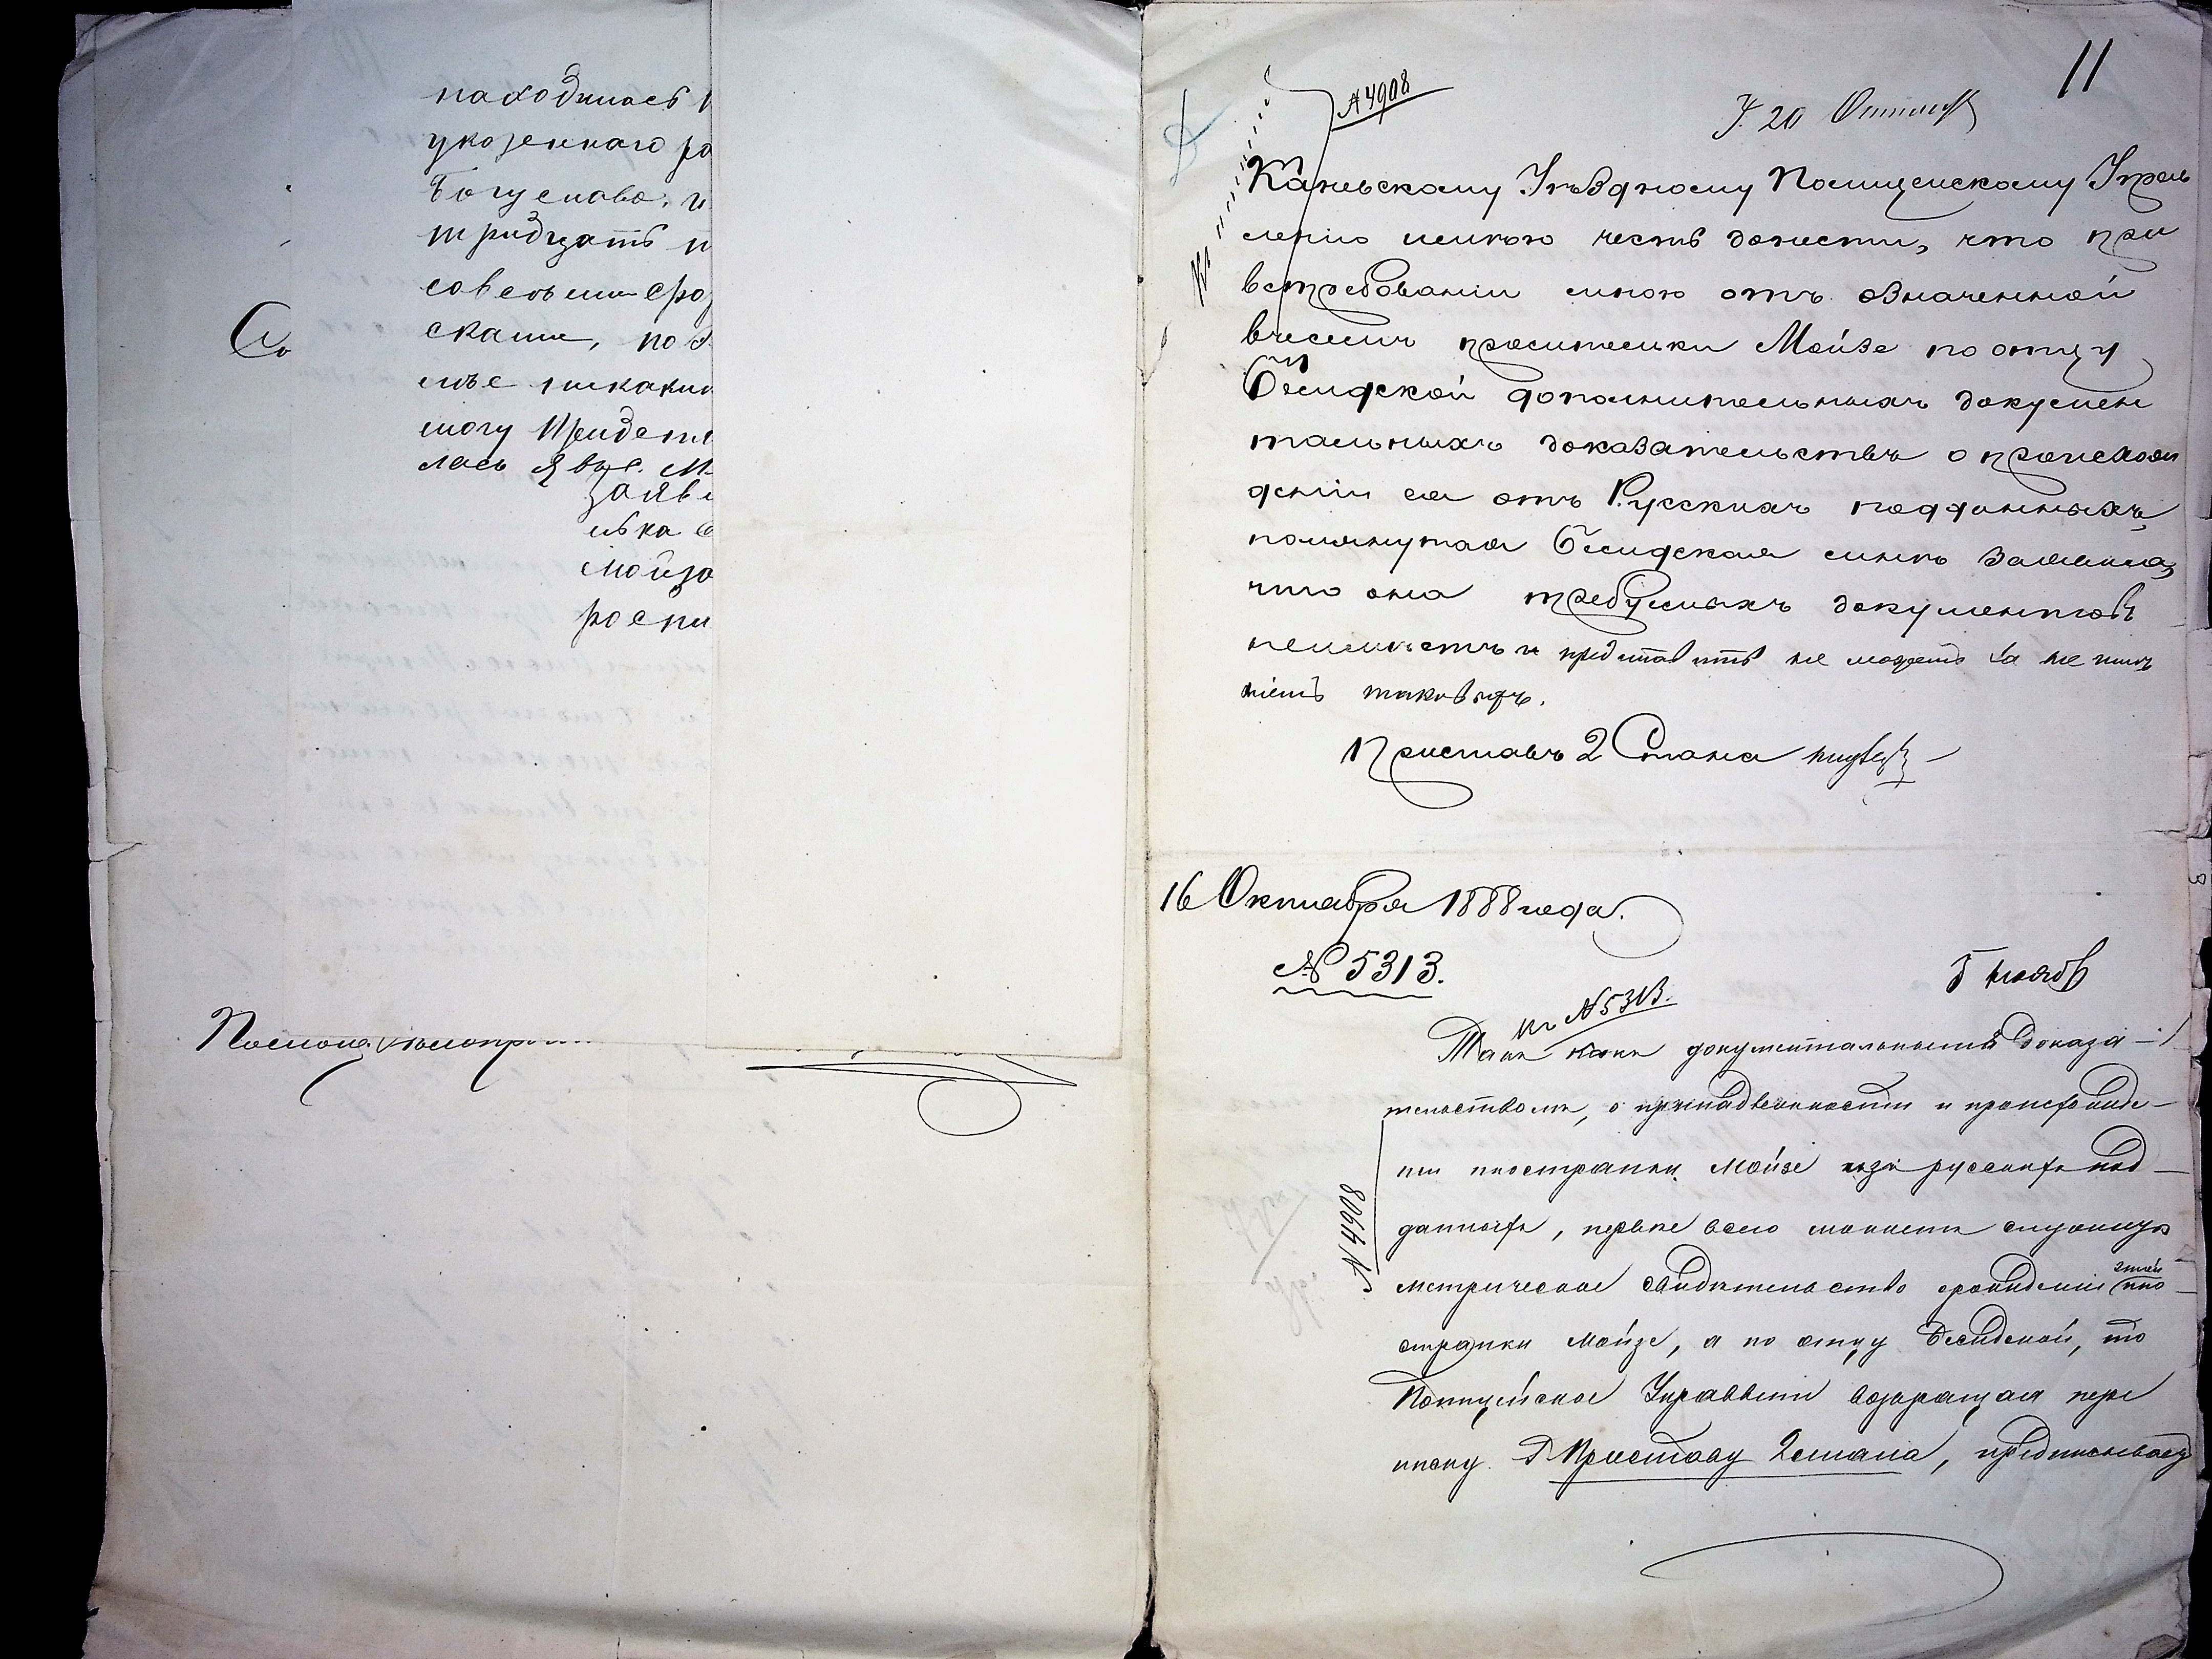 находилась
указеннаго ро
Богуслава, и
тридцать п
совсем
скаши, по
мъе никаки
могу
лась Я
заяв
ивка
Мойзо
роспи
Со
11
№ 4908
П. 20 Октяб
Каневскому Уѣздному Полицейскому Управ
ленію имѣю честь донести, что при
встребованіи мною отъ означенной
въ семъ просительки Мойзе по отцу
Бѣлидской дополнительныхъ докумен
тальныхъ доказательствъ о происхож
деніи ея отъ Русскихъ подданныхъ,
помянутая мнѣ заявила,
что она требуемыхъ документовъ
неимѣетъ и представить не можетъ за не имѣ
ніемъ таковыхъ.
Приставъ 2 Стана
16 Октября 1888 года.
№ 5313.
5 нояб
къ № 5313.
Такъ какъ документальнымъ доказа-
тельствомъ, о принадлежности и происхожде-
ніи иностранки Мойзе изъ русскихъ под-
данныхъ, первѣе всего можетъ служить
№ 4908
метрическое свидѣтельство о рожденіи этой ино-
странки Мойзе, а по отцу то
Полицейское Управленіе возвращая пере
писку Г Приставу 2 стана, предписываетъ